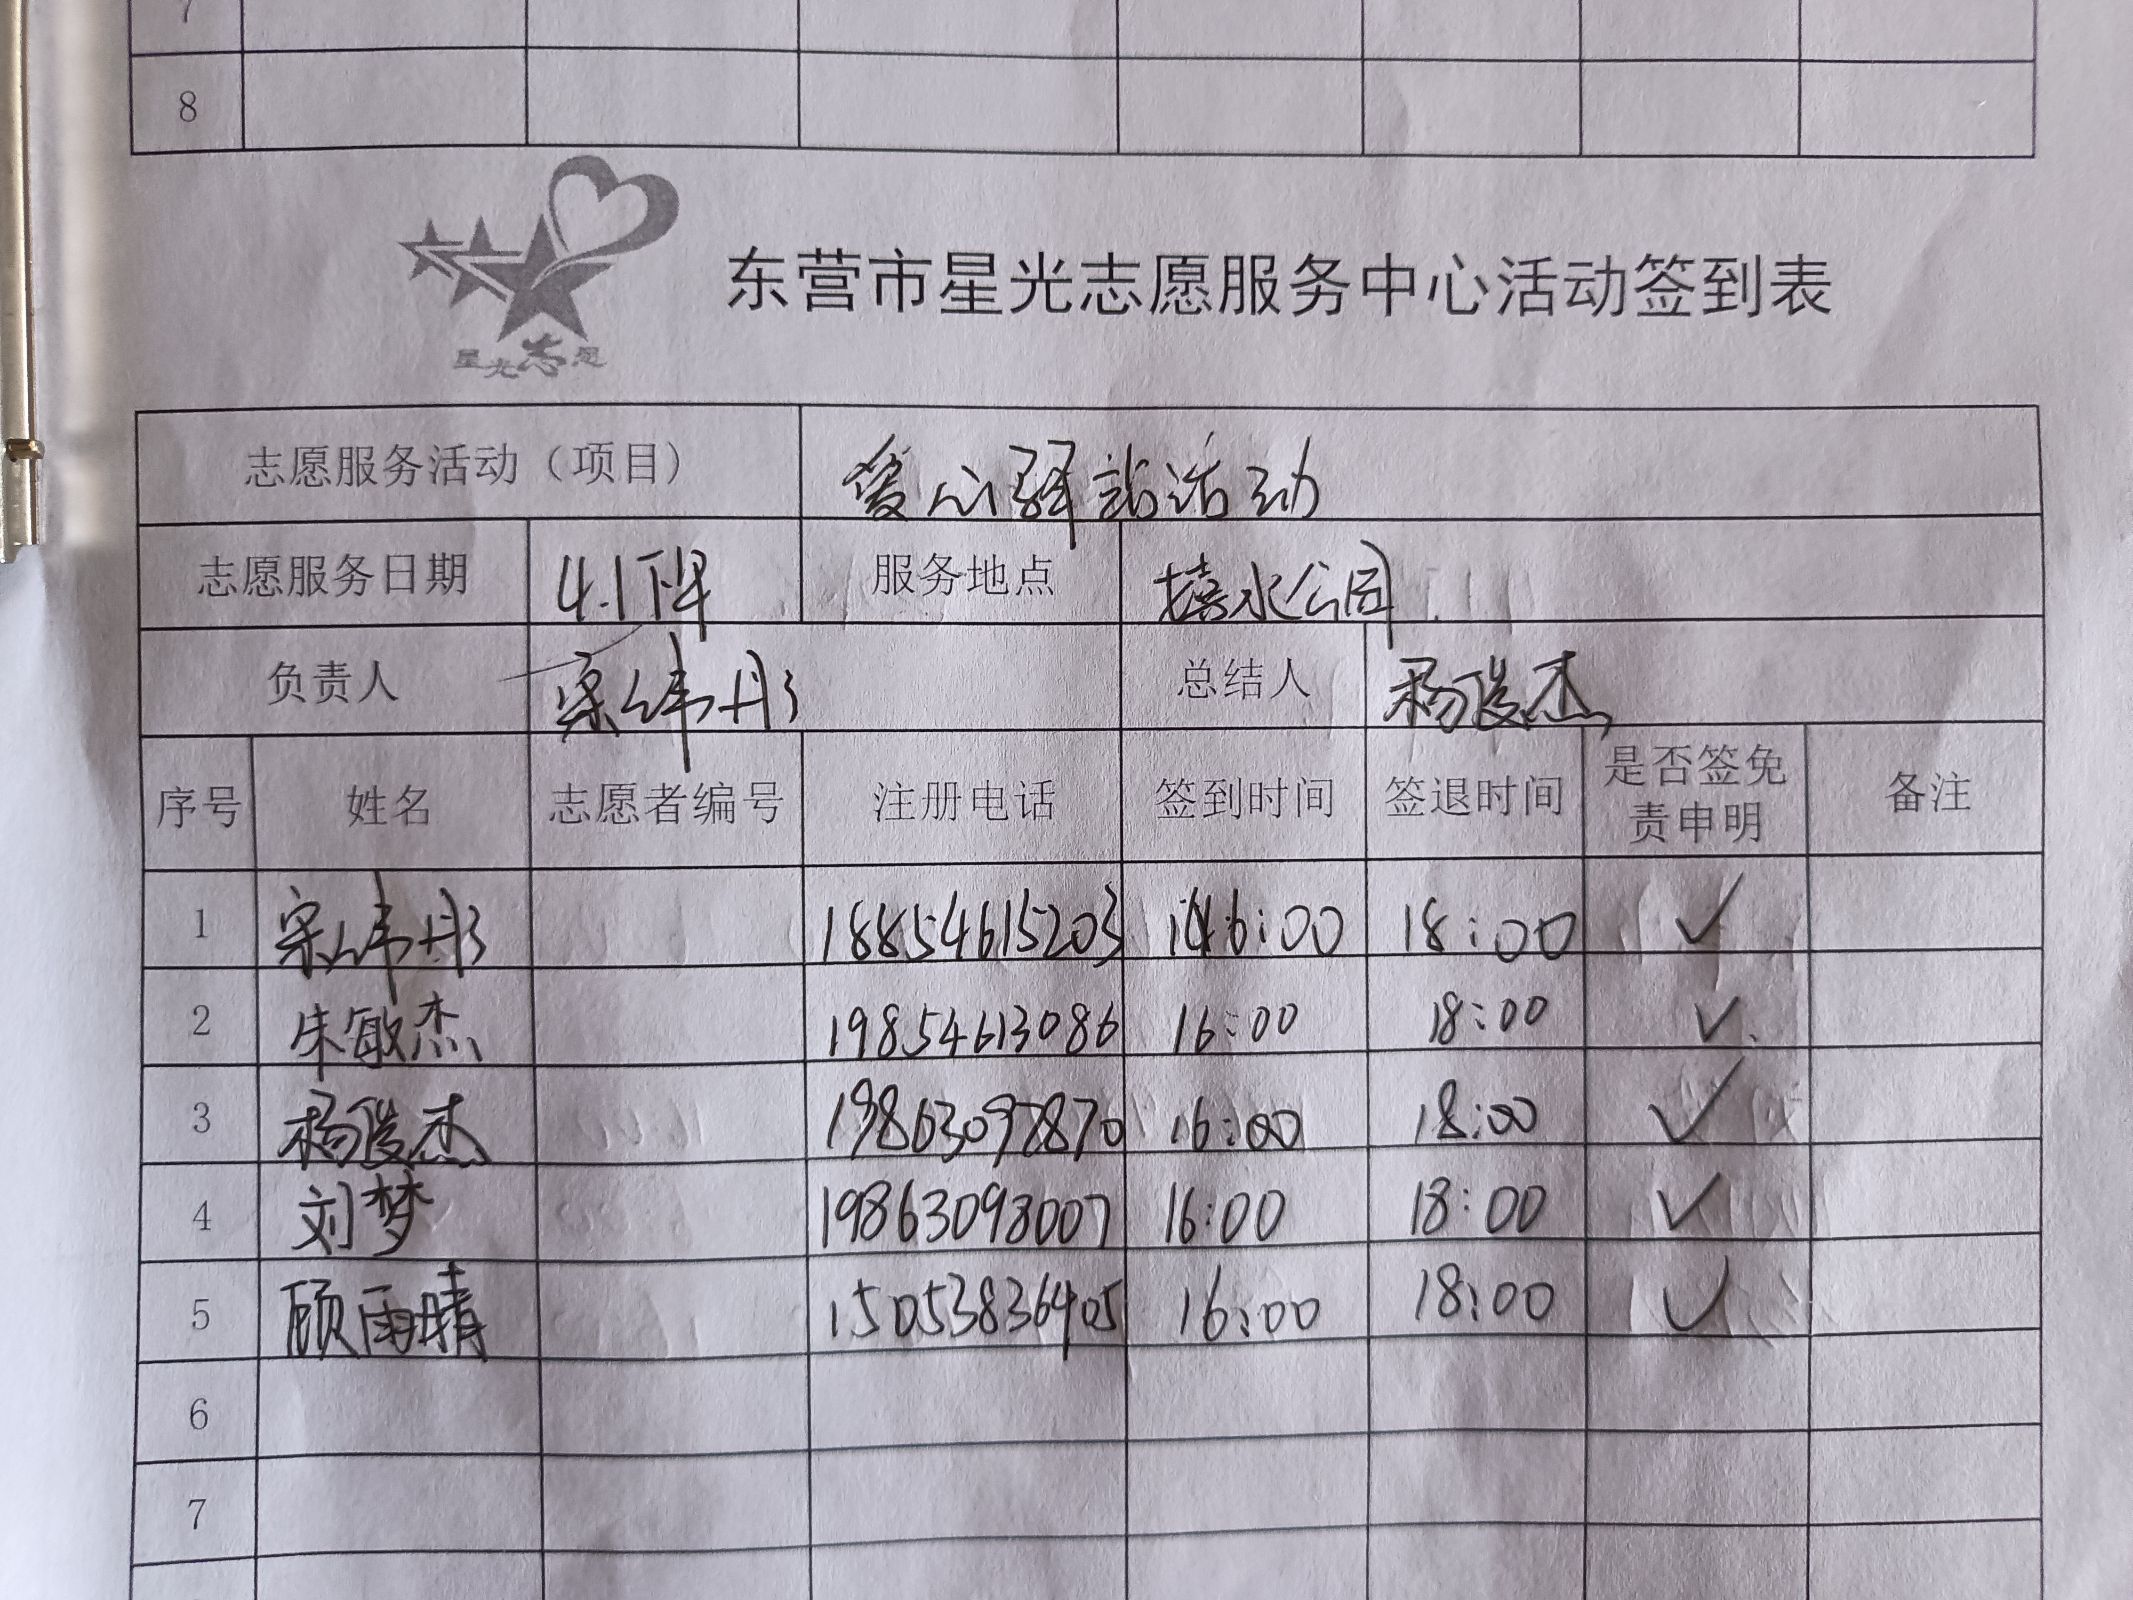 7
8
星光志愿
东营市星光志愿服务中心活动签到表
志愿服务活动（项目） 爱心驿站活动
志愿服务日期 4.1下午 服务地点 揽水公园
负责人 宋纬彤 总结人 杨俊杰
序号 姓名 志愿者编号 注册电话 签到时间 签退时间 是否签免责申明 备注
1 宋纬彤 18854615203 16:00 18:00 ✓
2 朱敏杰 19854613086 16:00 18:00 ✓
3 杨俊杰 19863097870 16:00 18:00 ✓
4 刘梦 19863093007 16:00 18:00 ✓
5 顾雨晴 15053836405 16:00 18:00 ✓
6
7